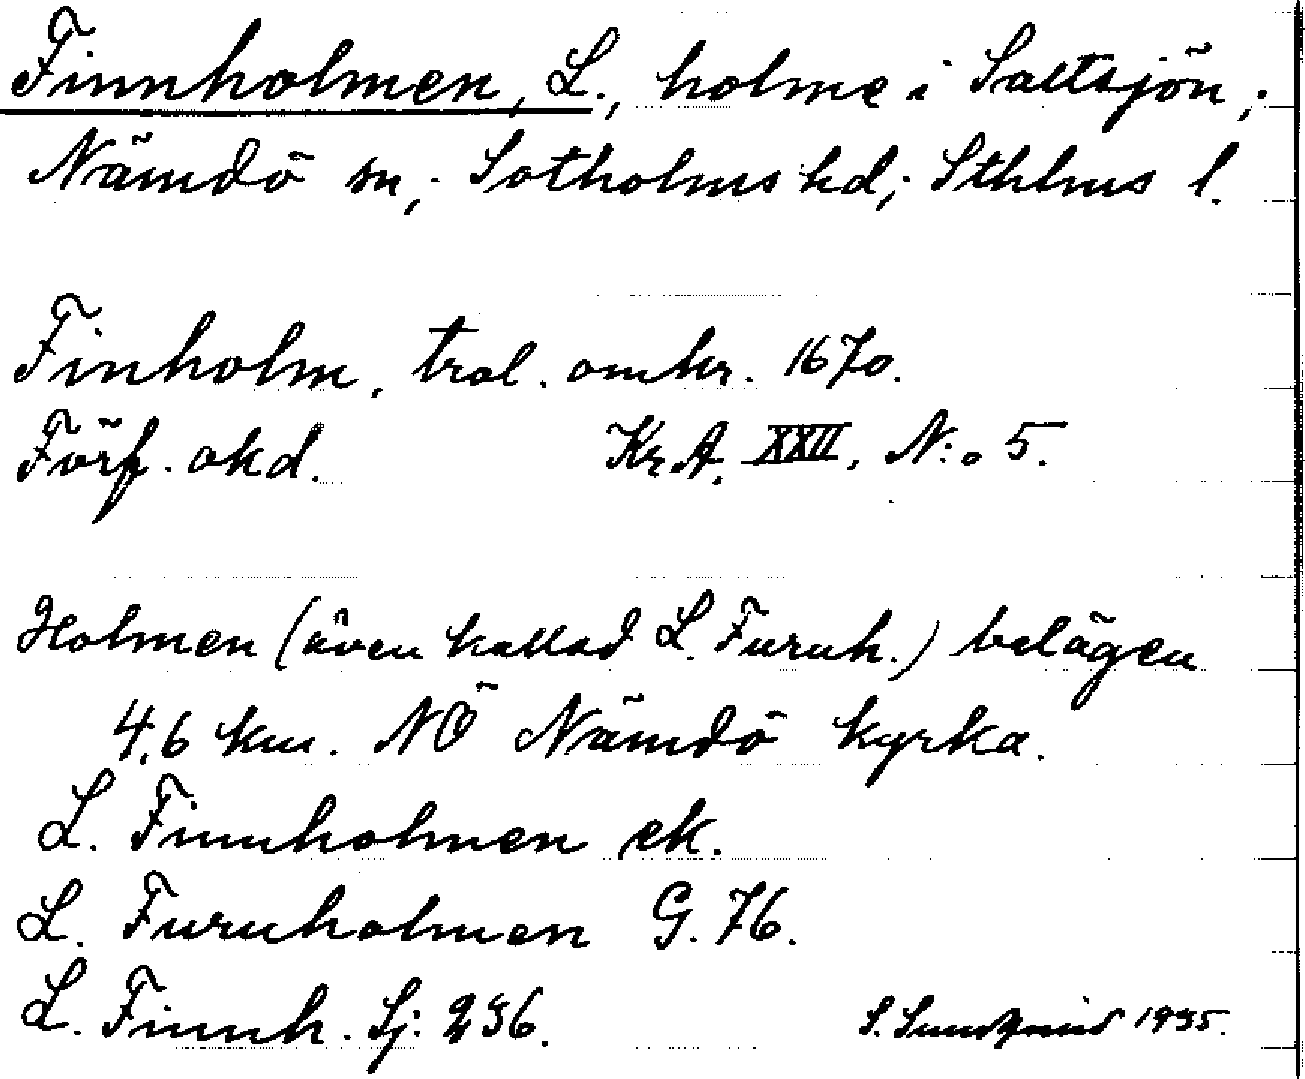 Finnholmen, L., holme i Saltsjön;
Nämdö sn; Sotholms hd; Sthlms l.
Finholm, trol. omkr. 1670.
Förf. okd. Kr.A. XXII, N:o 5.
Holmen (även kallad L. Furuh.) belägen
4,6 km. NÖ Nämdö kyrka.
L. Finnholmen ek.
L. Furuholmen G. 76.
L. Finnh. Sj: 236.
S. Sundqvist 1935.